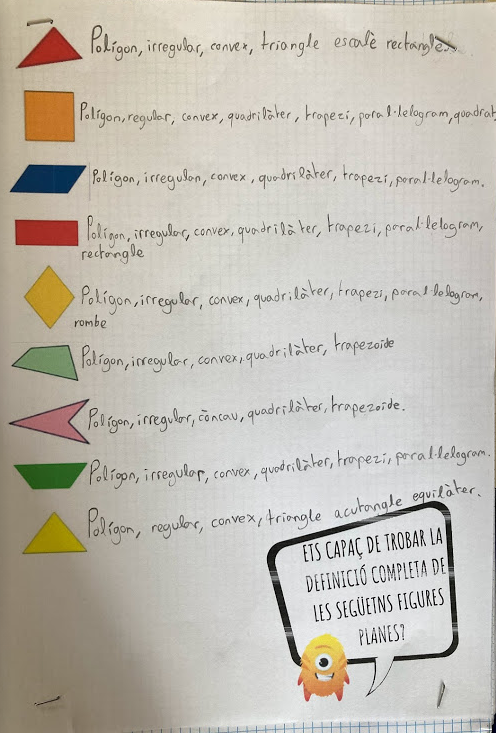 Polígon, irregular, convex, triangle escalè rectangle.
Polígon, regular, convex, quadrilàter, trapezi, paral·lelogram, quadrat
Polígon, irregular, convex, quadrilàter, trapezi, paral·lelogram.
Polígon, irregular, convex, quadrilàter, trapezi, paral·lelogram,
rectangle
Polígon, irregular, convex, quadrilàter, trapezi, paral·lelogram,
rombe
Polígon, irregular, convex, quadrilàter, trapezoide
Polígon, irregular, còncau, quadrilàter, trapezoide.
Polígon, irregular, convex, quadrilàter, trapezi, paral·lelogram.
Polígon, regular, convex, triangle acutangle equilàter.
ETS CAPAÇ DE TROBAR LA
DEFINICIÓ COMPLETA DE
LES SEGÜETNS FIGURES
PLANES?